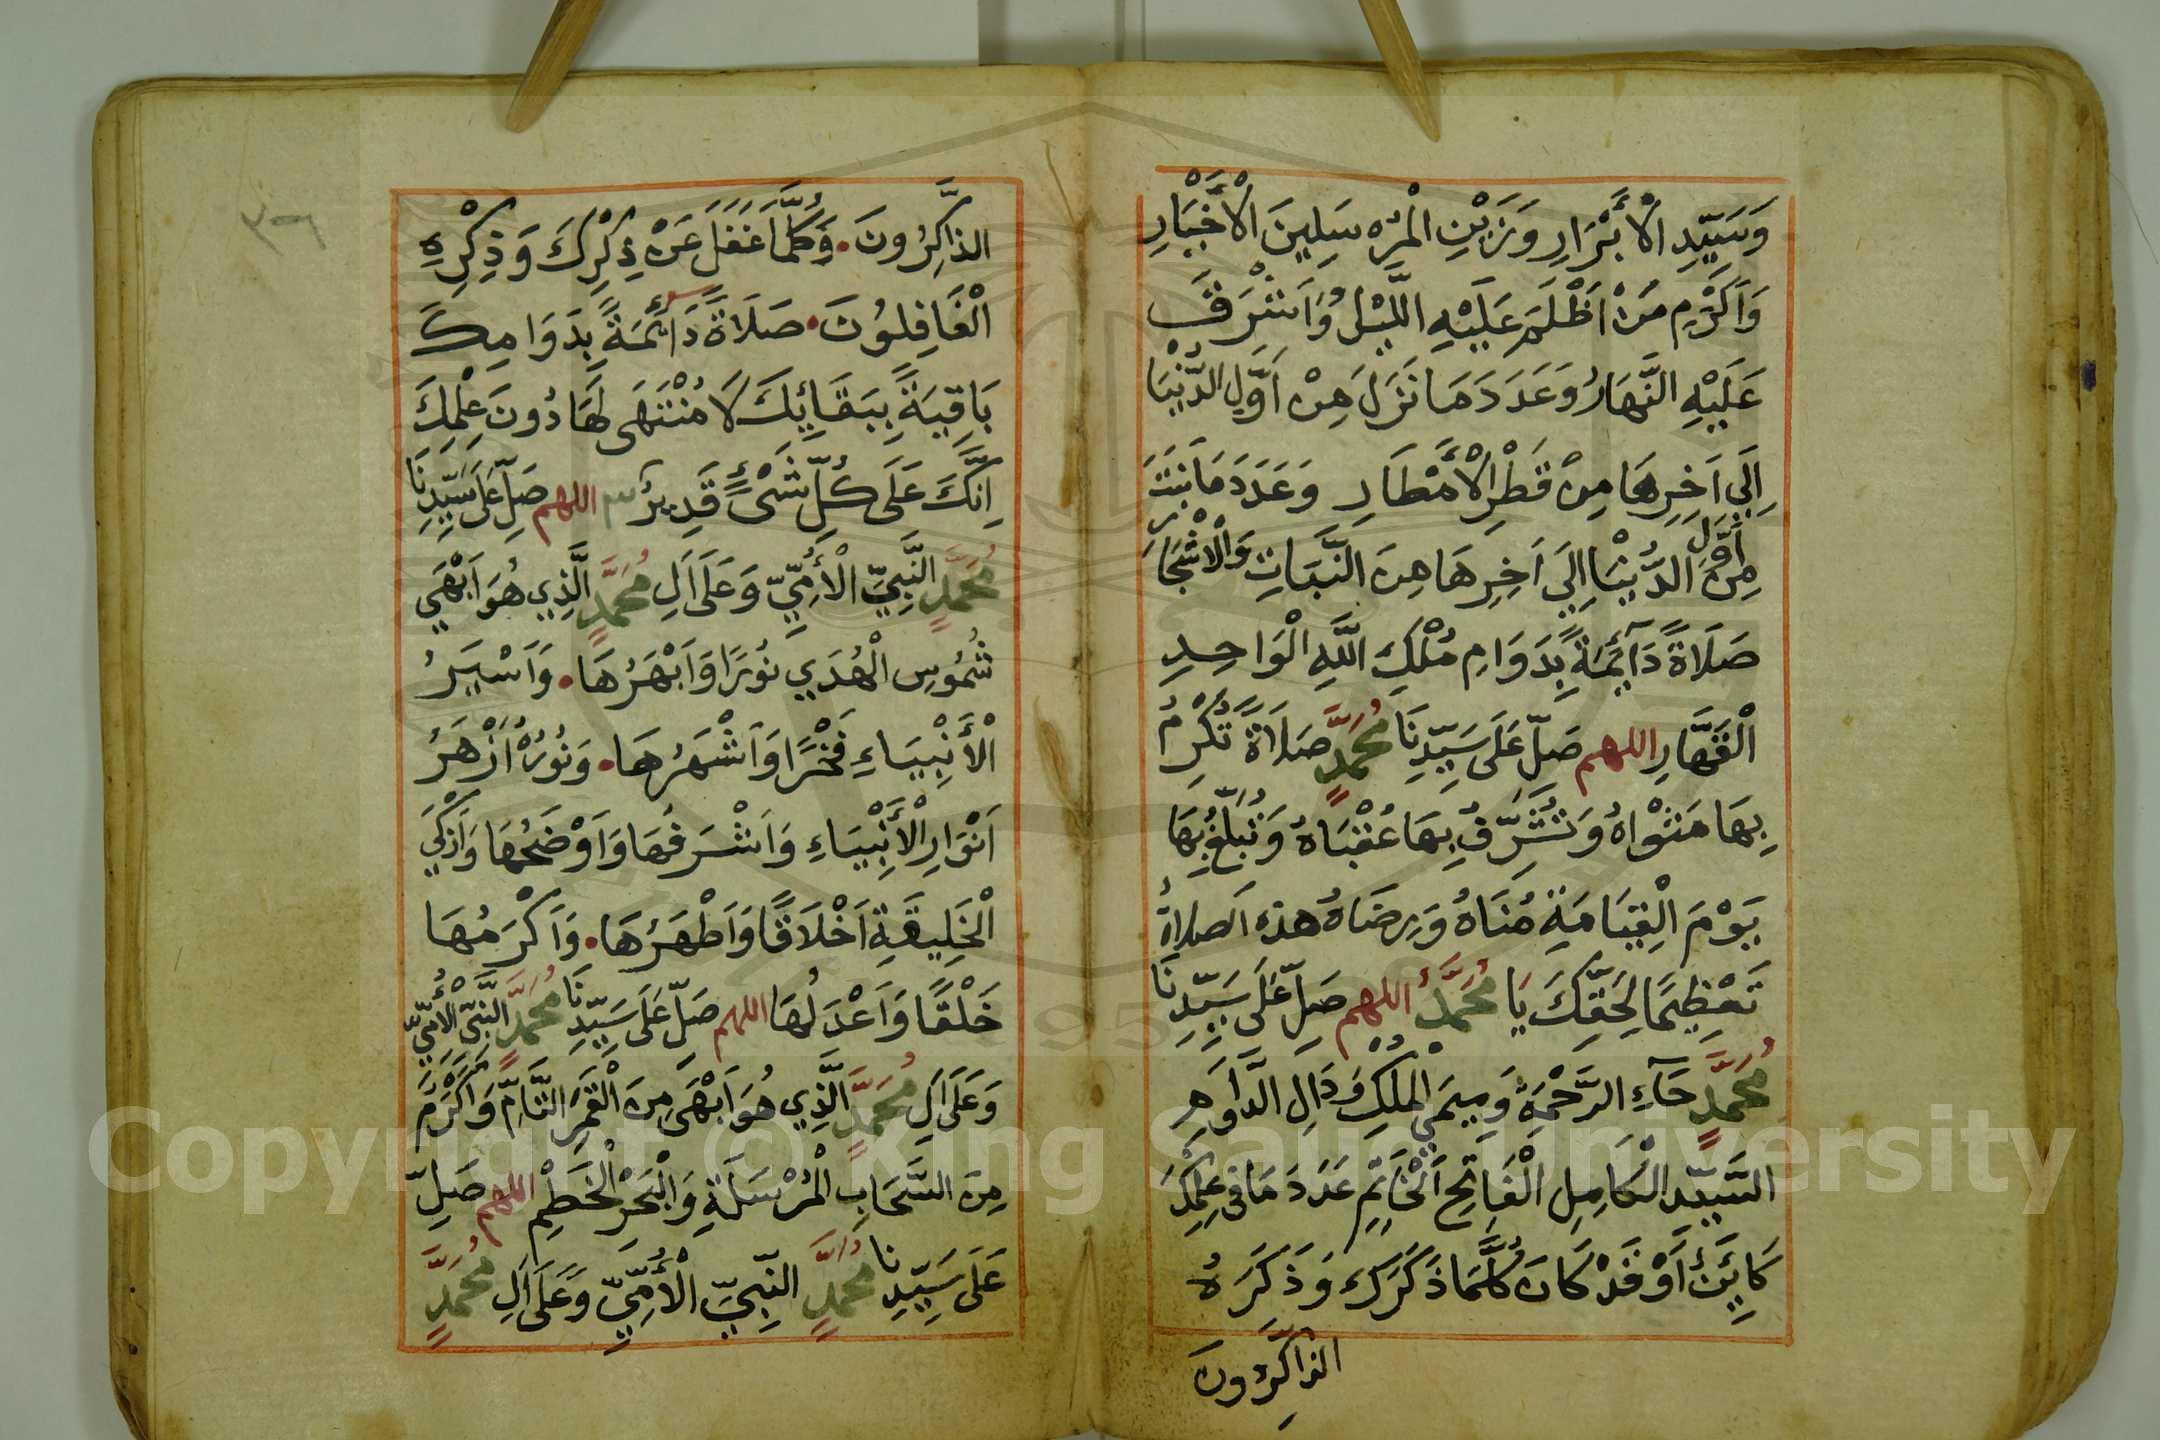 وَسَيِّدِ الْأَبْرَارِ وَزَيْنِ الْمُرْسَلِينَ الْأَخْيَارِ
وَأَكْرَمِ مَنْ أَظْلَمَ عَلَيْهِ اللَّيْلُ وَأَشْرَقَ
عَلَيْهِ النَّهَارُ وَعَدَدَ مَا نَزَلَ مِنْ أَوَّلِ الدُّنْيَا
إِلَي آخِرِهَا مِنْ قَطْرِ الْأَمْطَارِ وَعَدَدَ مَا نَبَتَ
مِنْ أَوَّلِ الدُّنْيَا إِلَي آخِرِهَا مِنَ النَّبَاتِ وَالْأَشْجَارِ
صَلَاةً دَآئِمَةً بِدَوَامِ مُلْكِ اللَّهِ الْوَاحِدِ
الْقَهَّارِ اللهم صَلِّ عَلَى سَيِّدِنَا مُحَمَّدٍ صَلَاةً تُكْرِمُ
بِهَا مَثْوَاهُ وَتُشَرِّفُ بِهَا عُقْبَاهُ وَتُبَلِّغُ بِهَا
يَوْمَ الْقِيَامَةِ مُنَاهُ وَرِضَاهُ هذه الصلاةُ
تَعْظِيمًا لِحَقِّكَ يَا مُحَمَّدُ اللهم صَلِّ عَلَى سَيِّدِنَا
مُحَمَّدٍ حَآءِ الرَّحْمَةِ وَمِيمَيِ الْمُلْكِ وَدَالِ الدَّوَاهِرِ
السَّيِّدِ الْكَامِلِ الْفَاتِحِ الْخَاتِمِ عَدَدَ مَا فِي عِلْمِكَ
كَائِنٌ أَوْ قَدْ كَانَ كُلَّمَا ذَكَرَكَ وَذَكَرَهُ
الذاكِرُونَ
الذاكِرُونَ. وَكُلَّمَا غَفَلَ عَنْ ذِكْرِكَ وَذِكْرِهِ
الْغَافِلُونَ. صَلَاةً دَائِمَةً بِدَوَامِكَ
بَاقِيَةً بِبَقَائِكَ لَا مُنْتَهَى لَهَا دُونَ عِلْمِكَ
إِنَّكَ عَلَى كُلِّ شَيْءٍ قَدِيرٌ ٣ اللهم صَلِّ عَلَى سَيِّدِنَا
مُحَمَّدٍ النَّبِيِّ الْأُمِّيِّ وَعَلَى آلِ مُحَمَّدٍ الَّذِي هُوَ أَبْهَي
شُمُوسِ الْهُدَي نُورًا وَأَبْهَرُهَا. وَأَسْيَرُ
الْأَنْبِيَاءِ فَخْرًا وَأَشْهَرُهَا. وَنُورُهُ أَزْهَرُ
أَنْوَارِ الْأَنْبِيَاءِ وَأَشْرَفُهَا وَأَوْضَحُهَا وَأَزْكَي
الْخَلِيقَةِ أَخْلَاقًا وَأَطْهَرُهَا. وَأَكْرَمُهَا
خَلْقًا وَأَعْدَلُهَا اللهم صَلِّ عَلَى سَيِّدِنَا مُحَمَّدٍ النَّبِيِّ الْأُمِّيِّ
وَعَلَى آلِ مُحَمَّدٍ الَّذِي هُوَ أَبْهَى مِنَ الْقَمَرِ التَّامِّ وَأَكْرَمُ
مِنَ السَّحَابِ الْمُرْسَلَةِ وَالْبَحْرِ الْخَطِمْ اللهم صَلِّ
عَلَى سَيِّدِنَا مُحَمَّدٍ النَّبِيِّ الْأُمِّيِّ وَعَلَى آلِ مُحَمَّدٍ
Copyright © King Saud University